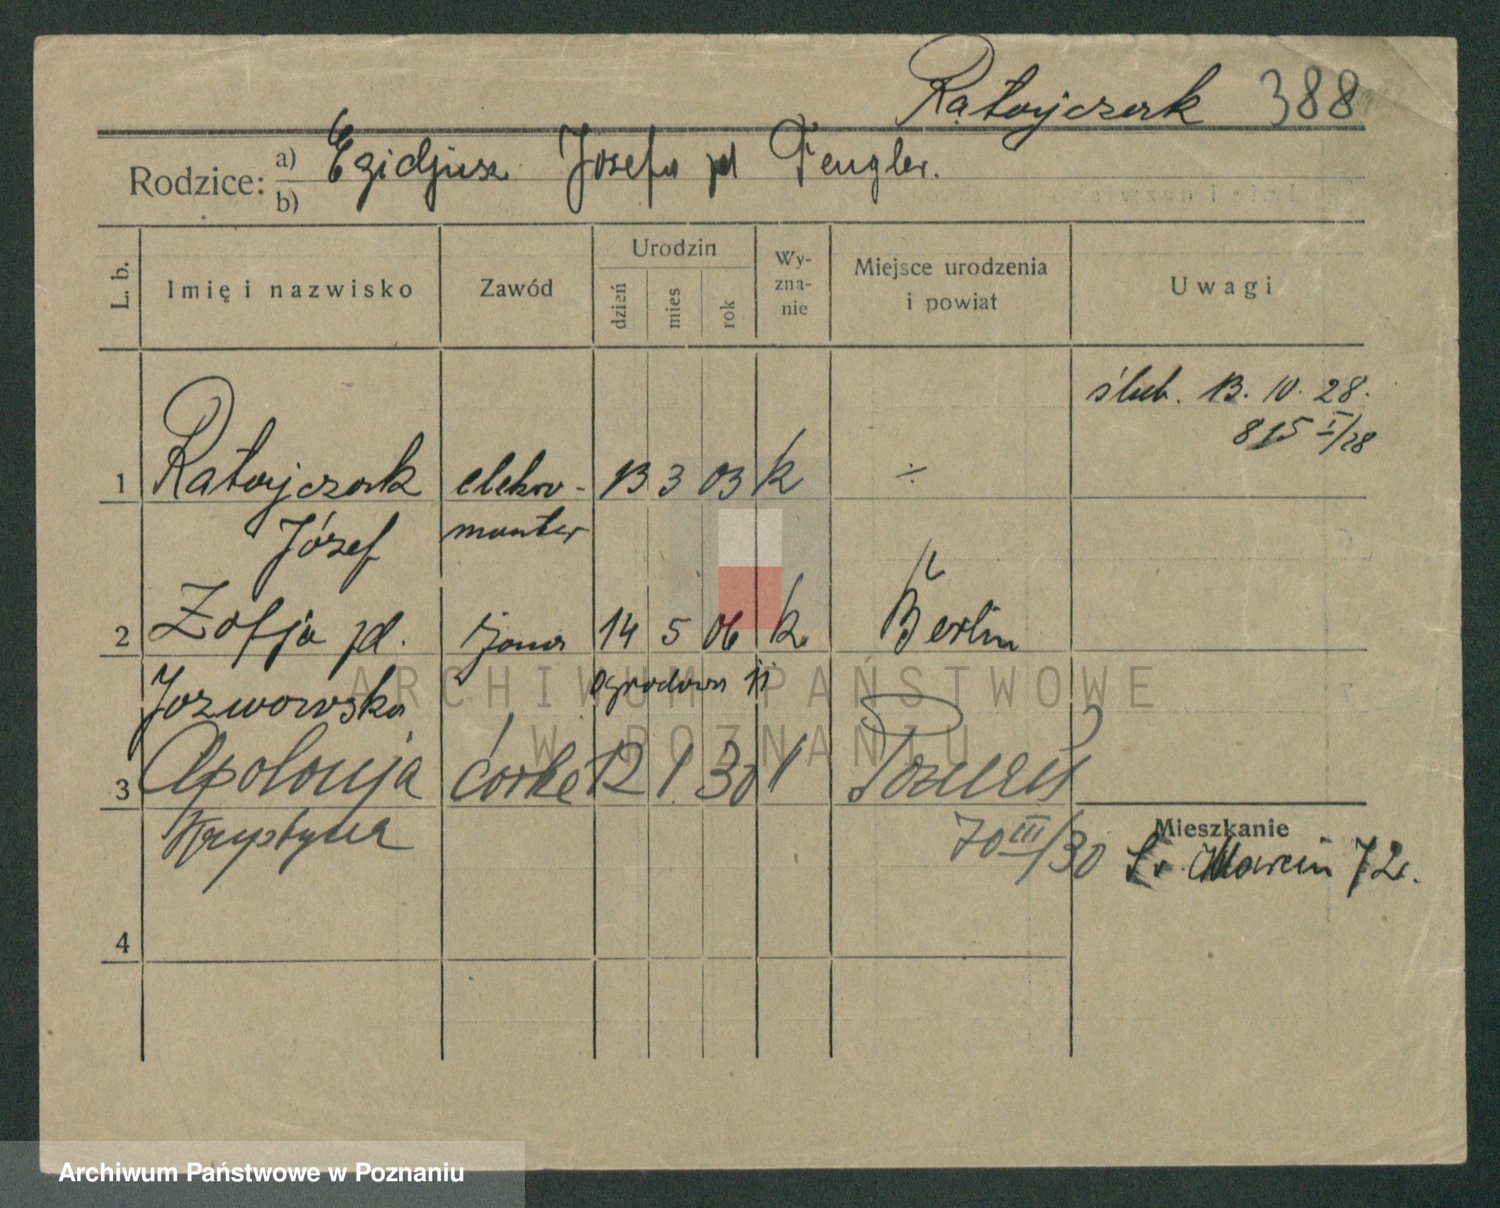 Ratajczak 388
Rodzice: a) Egidjusz Józefa zd Fengler.
b)
L. b. Imię i nazwisko Zawód Urodzin dzień mies rok Wyznanie Miejsce urodzenia i powiat Uwagi
ślub. 13. IV. 28.
815 I/28
1 Ratajczak elektro- 13 3 03 k ÷
Józef monter
2 Zofja zd. żona 14 5 06 k Berlin
Jozwowska Ogrodowa 11
3 Apolonja córka 12 1 30 Poznań
Krystyna 70 III/30
Mieszkanie
Św. Marcin 72.
4
ARCHIWUM PAŃSTWOWE
W POZNANIU
Archiwum Państwowe w Poznaniu